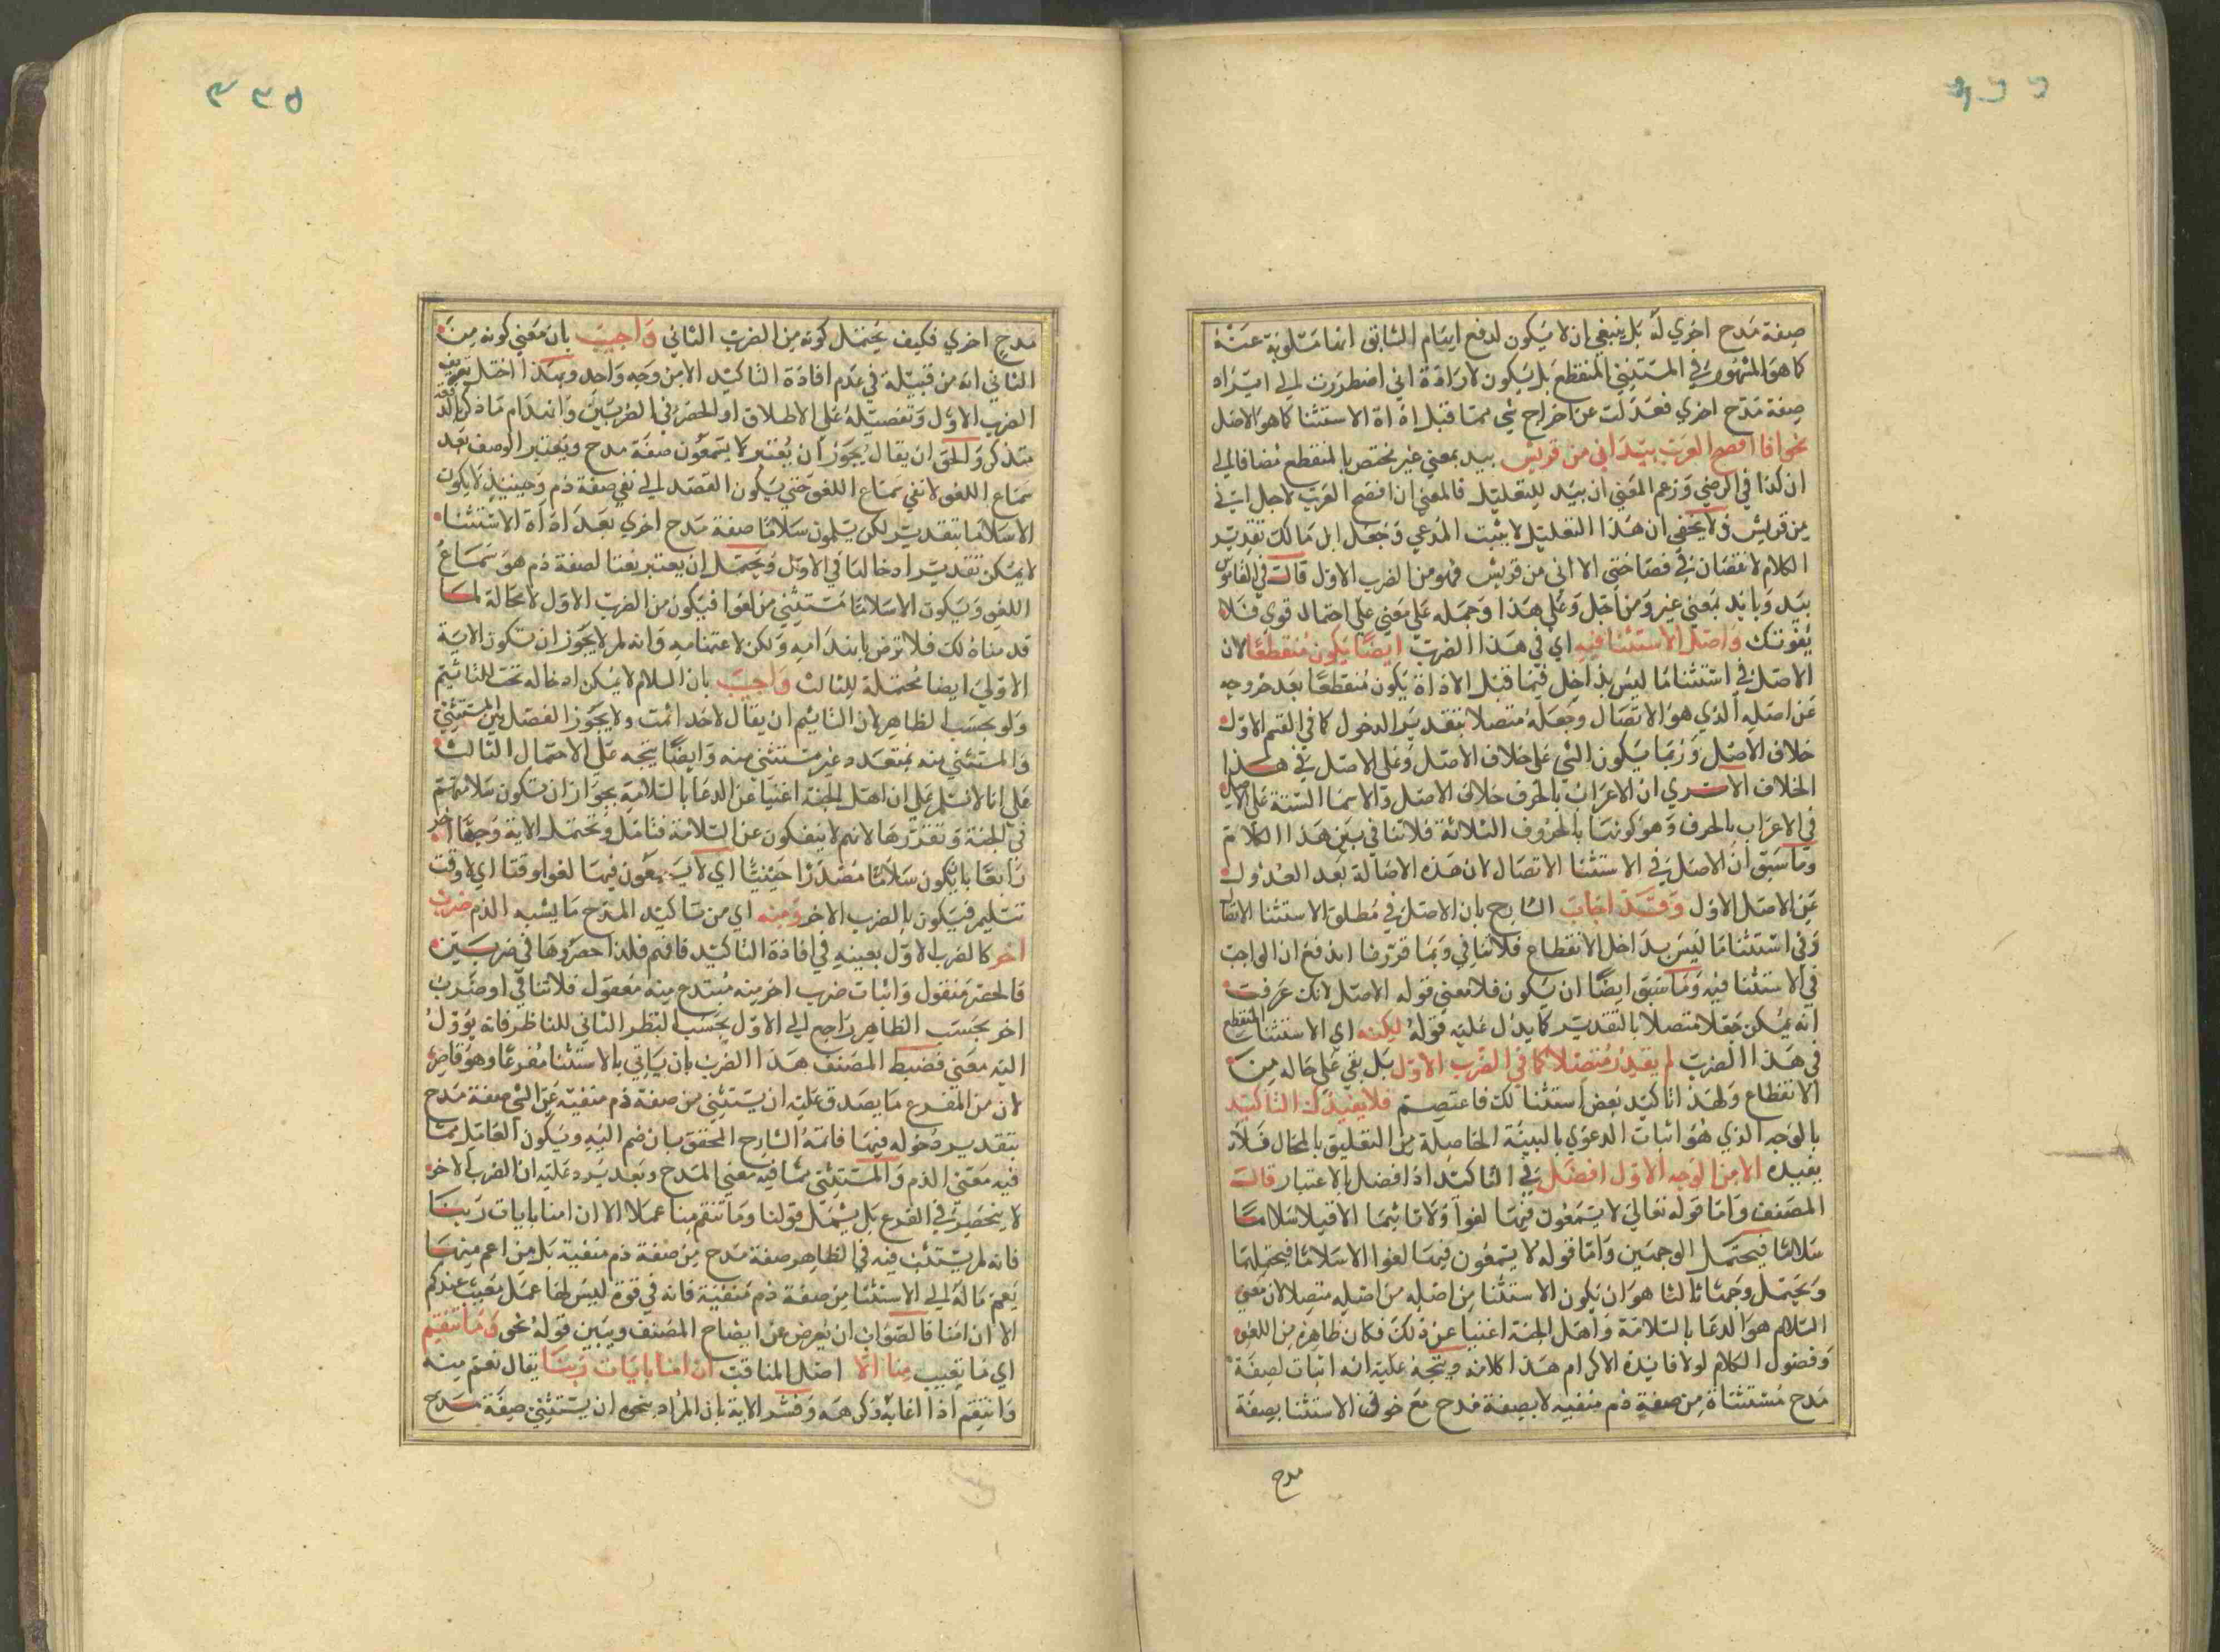 صفة مدح اخري له بل ينبغي ان لا يكون لدفع ايهام السابق انها مسلوبة عنه
كما هو المشهور في المستثني المنقطع بل يكون لارادة اني اضطررت الي ايراد
صفة مدح اخري فعدلت عن اخراج شي مما قبل اداة الاستثنا كما هو الاصل
نحو انا افصح العرب بيد اني من قريش بيد بمعني غير نختص بالمنقطع مضافا الي
ان كذا في الرضي وزعم المغني ان بيد للتعليل فالمعني انا افصح العرب لاجل اني
من قريش ولا يخفي ان هذا التعليل لا يثبت المدعي وجعل ابن مالك تقدير
الكلام لا نقصان في فصاحتي الا اني من قريش فهو من الضرب الاول قال في القاموس
بيد وبايد بمعني غير ومن اجل وعلي هذا وحمله علي معني علي احتمال قوي فلا
يفوتك واصل الاستثنا فيه اي في هذا الضرب ايضا يكون منقطعا لان
الاصل في استثنا ما ليس بداخل فيما قبل الاداة يكون منقطعا بعد خروجه
عن اصله الذي هو الاتصال وجعله متصلا بتقدير الدخول كما في القسم الاول
خلاف الاصل وربما يكون الشي علي خلاف الاصل وعلي الاصل في هذا
الخلاف الا تري ان الاعراب بالحرف خلاف الاصل والاسما الستة علي الاصل
في الاعراب بالحرف وهو كونها بالحروف الثلاثة فلا تنافي بين هذا الكلام
وما سبق ان الاصل في الاستثنا الاتصال لان هذه الاصالة بعد العدول
عن الاصل الاول وقد اجاب الشارح بان الاصل في مطلق الاستثنا الاتصال
وفي استثنا ما ليس بداخل الانقطاع فلا تنافي وبما قررنا اندفع ان الواجب
في الاستثنا فيه وما سبق ايضا ان يكون فلا معني قوله الاصل لانك عرفت
انه يمكن جعله متصلا بالتقدير كما يدل عليه قوله لكنه اي الاستثنا المنقطع
في هذا الضرب لم يقدر متصلا كما في الضرب الاول بل بقي علي حاله من
الانقطاع ولهذا تاكيد بعض استثنا لك فاعتصم فلا يفيد التاكيد
بالوجه الذي هو اثبات الدعوي بالبينة الحاصلة من التعليق بالمحال فلا
يفيده الا من الوجه الاول افضل في التاكيد اذ افضل بالاعتبار قال
المصنف واما قوله تعالي لا يسمعون فيها لغوا ولا تاثيما الا قيلا سلاما
سلاما فيحتمل الوجهين واما قوله لا يسمعون فيها لغوا الا سلاما فيحتملهما
ويحتمل وجها ثالثا هو ان يكون الاستثنا من اصله من اصله متصلا لان معني
السلام هو الدعا بالسلامة واهل الجنة اغنيا عن ذلك فكان ظاهره من اللغو
وفضول الكلام لولا فائدة الاكرام هذا كلامه ويتجه عليه انه اثبات لصفة
مدح مستثناة من صفة ذم منفيه لا بصفة مدح مع خوف الاستثنا بصفة
مدح
٣٣٥
مدح اخري فكيف يحتمل كونه من الضرب الثاني واجيب بان معني كونه من
الثاني انه من قبيلة في عدم افادة التاكيد الا من وجه واحد وبهذا اختل تعريف
الضرب الاول وتفصيله علي الاطلاق او الحصر في الضربين وانهدام ما ذكر بالدقة
متذكر والحق ان يقال يجوز ان يعتبر لا يسمعون صفة مدح ويعتبر الوصف بعد
سماع اللغو لا نفي سماع اللغو حتي يكون القصد الي نفي صفة ذم وحينيذ لا يكون
الا سلاما بتقدير لكن يسلمون سلاما صفة مدح اخري بعد اداة الاستثنا
لا يمكن تقدير ادخالها في الاول ويحتمل ان يعتبر نعتا لصفة ذم هو سماع
اللغو ويكون الا سلاما مستثني من لغوا فيكون من الضرب الاول لا محالة لما
قدمناه لك فلا ترض بابتدامه ولكن لاعتمامه وانه لم لا يجوز ان تكون الاية
الاولي ايضا محتملة للثالث واجيب بان السلام لا يمكن ادخاله تحت التاثيم
ولو بحسب الظاهر لان التاثيم ان يقال لاحد اثمت ولا يجوز الفصل بين المستثني
والمستثني منه بمتعدد غير مستثني منه وايضا يتجه علي الاحتمال الثالث
علي انا لا نسلم علي ان اهل الجنة اغنيا عن الدعا بالسلامة بجواز ان تكون سلامتهم
في الجنة وتقررها لانهم لا ينفكون عن السلامة فتامل وتحتمل الاية وجها اخر
رابعا بان يكون سلاما مصدرا حينيا اي لا يسمعون فيها لغوا وقتا اي لا وقت
تسليم فيكون بالضرب الاخر ومنه اي من تاكيد المدح ما يشبه الذم ضرب
اخر كالضرب الاول بعينه في افادة التاكيد فافهم فلذا حصروها في ضربين
فالحصر منقول واثبات ضرب اخر منه مبتدع منه معقول فلا تنافي او ضرب
اخر بحسب الظاهر راجع الي الاول بحسب النظر الثاني للناظر فانه يؤول
اليه معني فضبط المصنف هذا الضرب بان ياتي بالاستثنا مفرغا وهو قاصر
لان من المفرغ ما يصدق عليه ان يستثني من صفة ذم منفيه عن الشي صفة مدح
بتقدير دخوله فيها فاتمه الشارح المحقق بان ضم اليه ويكون العامل مما
فيه معني الذم والمستثني مما فيه معني المدح وبعد يرد عليه ان الضرب الاخر
لا ينحصر في الفرع بل يشمل قولنا وما تنقم منا عملا الا ان امنا بايات ربنا
فانه لم يستثن فيه في الظاهر صفة مدح من صفة ذم منفية بل من اعم منها
يعم ماله الي الاستثنا من صفة ذم منفية فانه في قوة ليس لنا عمل معيب عندكم
الا ان امنا فالصواب ان يعرض عن ايضاح المصنف ويبين قوله نحو وما تنقم
اي ما تعيب منا الا اصل المناقب ان امنا بايات ربنا يقال نعم منه
وانتقم اذا اعابه وكرهه وفسر الاية بان المراد بنحو ان يستثني صفة مدح